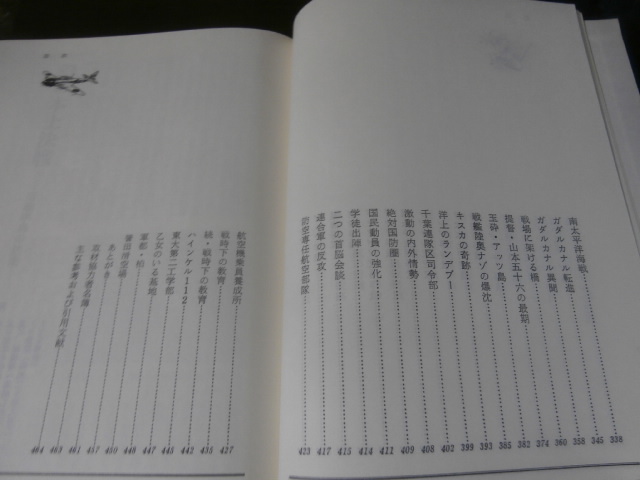 南太平洋海戦 338
ガダルカナル転進 345
ガダルカナル異聞 358
戦場に架ける橋 360
提督・山本五十六の最期 374
玉砕・アッツ島 382
戦艦陸奥ナゾの爆沈 385
キスカの奇跡 393
洋上のランデブー 399
千葉連隊区司令部 402
激動の内外情勢 408
絶対国防圏 409
国民動員の強化 411
学徒出陣 414
二つの首脳会談 415
連合軍の反攻 417
防空専任航空部隊 423
航空機乗員養成所 427
戦時下の教育 435
続・戦時下の教育 442
ハインケル112 445
東大第二工学部 447
乙女のいる基地 448
軍都・柏 450
誉田滑空場 457
あとがき 461
取材協力者名簿 463
主な参考および引用文献 464